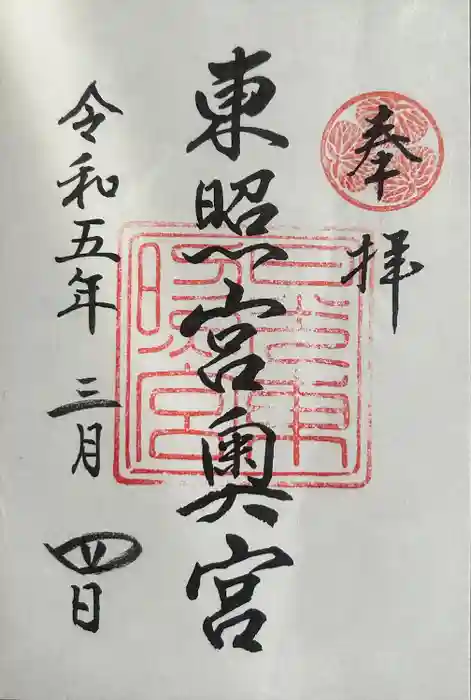 奉拝
東照宮奥宮
令和五年三月四日